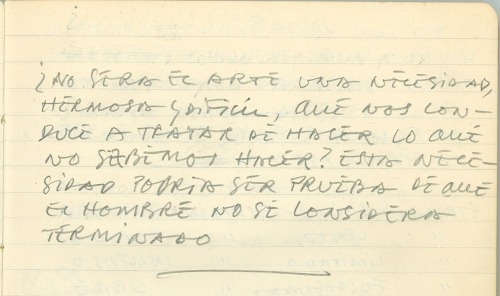 ¿NO SERA EL ARTE UNA NECESIDAD,
HERMOSA Y DIFICIL, QUE NOS CON-
DUCE A TRATAR DE HACER LO QUE
NO SABEMOS HACER? ESTA NECE-
SIDAD PODRIA SER PRUEBA DE QUE
EL HOMBRE NO SE CONSIDERA
TERMINADO